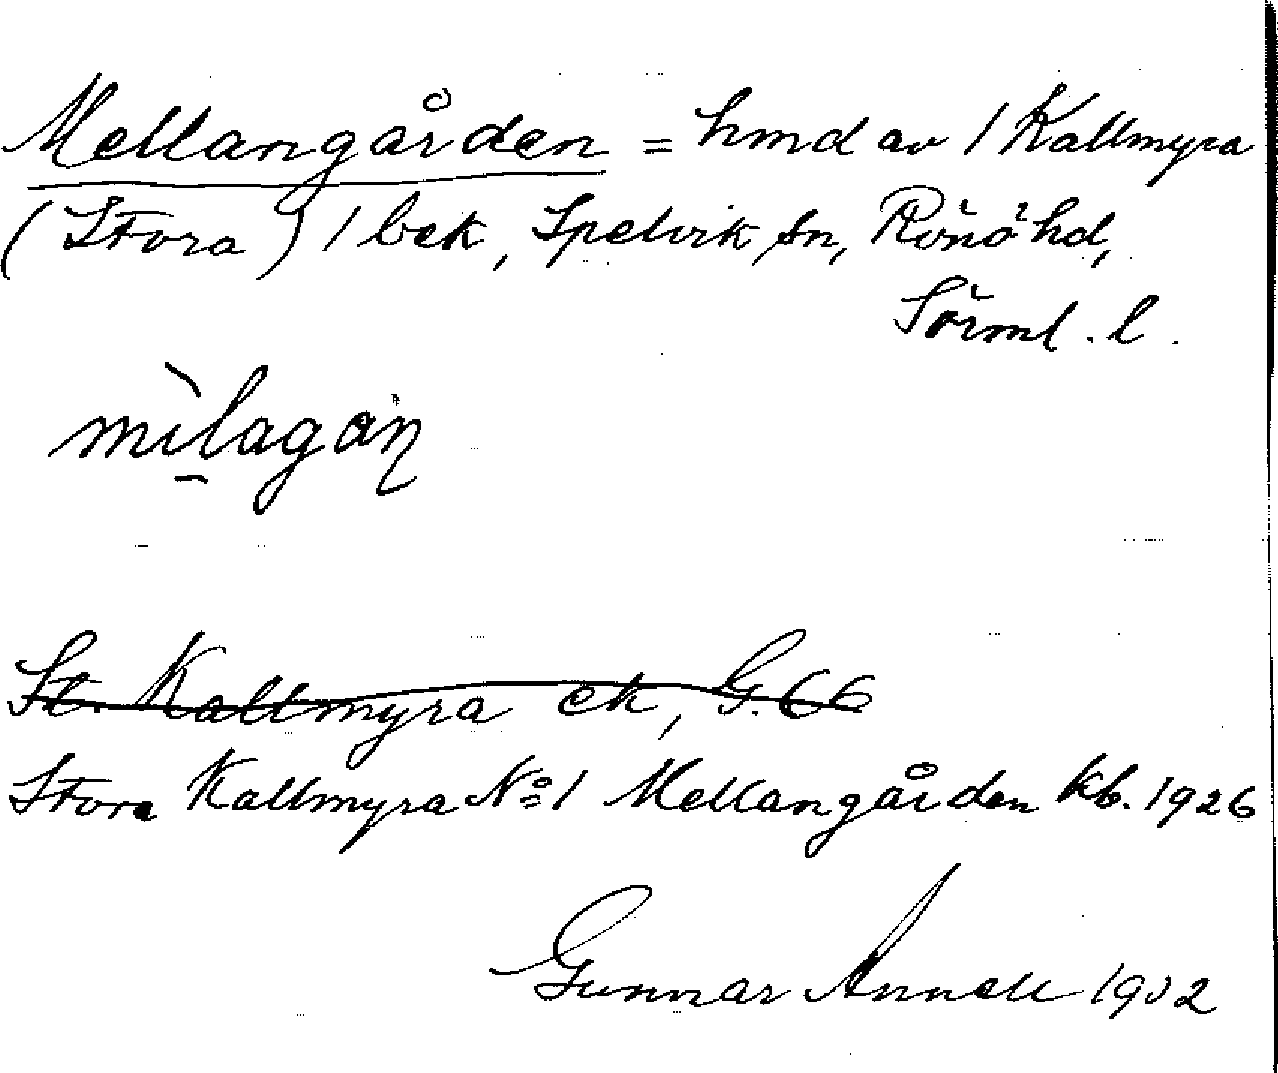 Mellangården = hmd av 1 Kallmyra
(Stora) 1 bek, Spelvik sn, Rönö hd,
Sörml. l.
mìlagan
St. Kallmyra ek, G. 66
Stora Kallmyra No 1 Mellangården kb. 1926
Gunnar Annell 1932